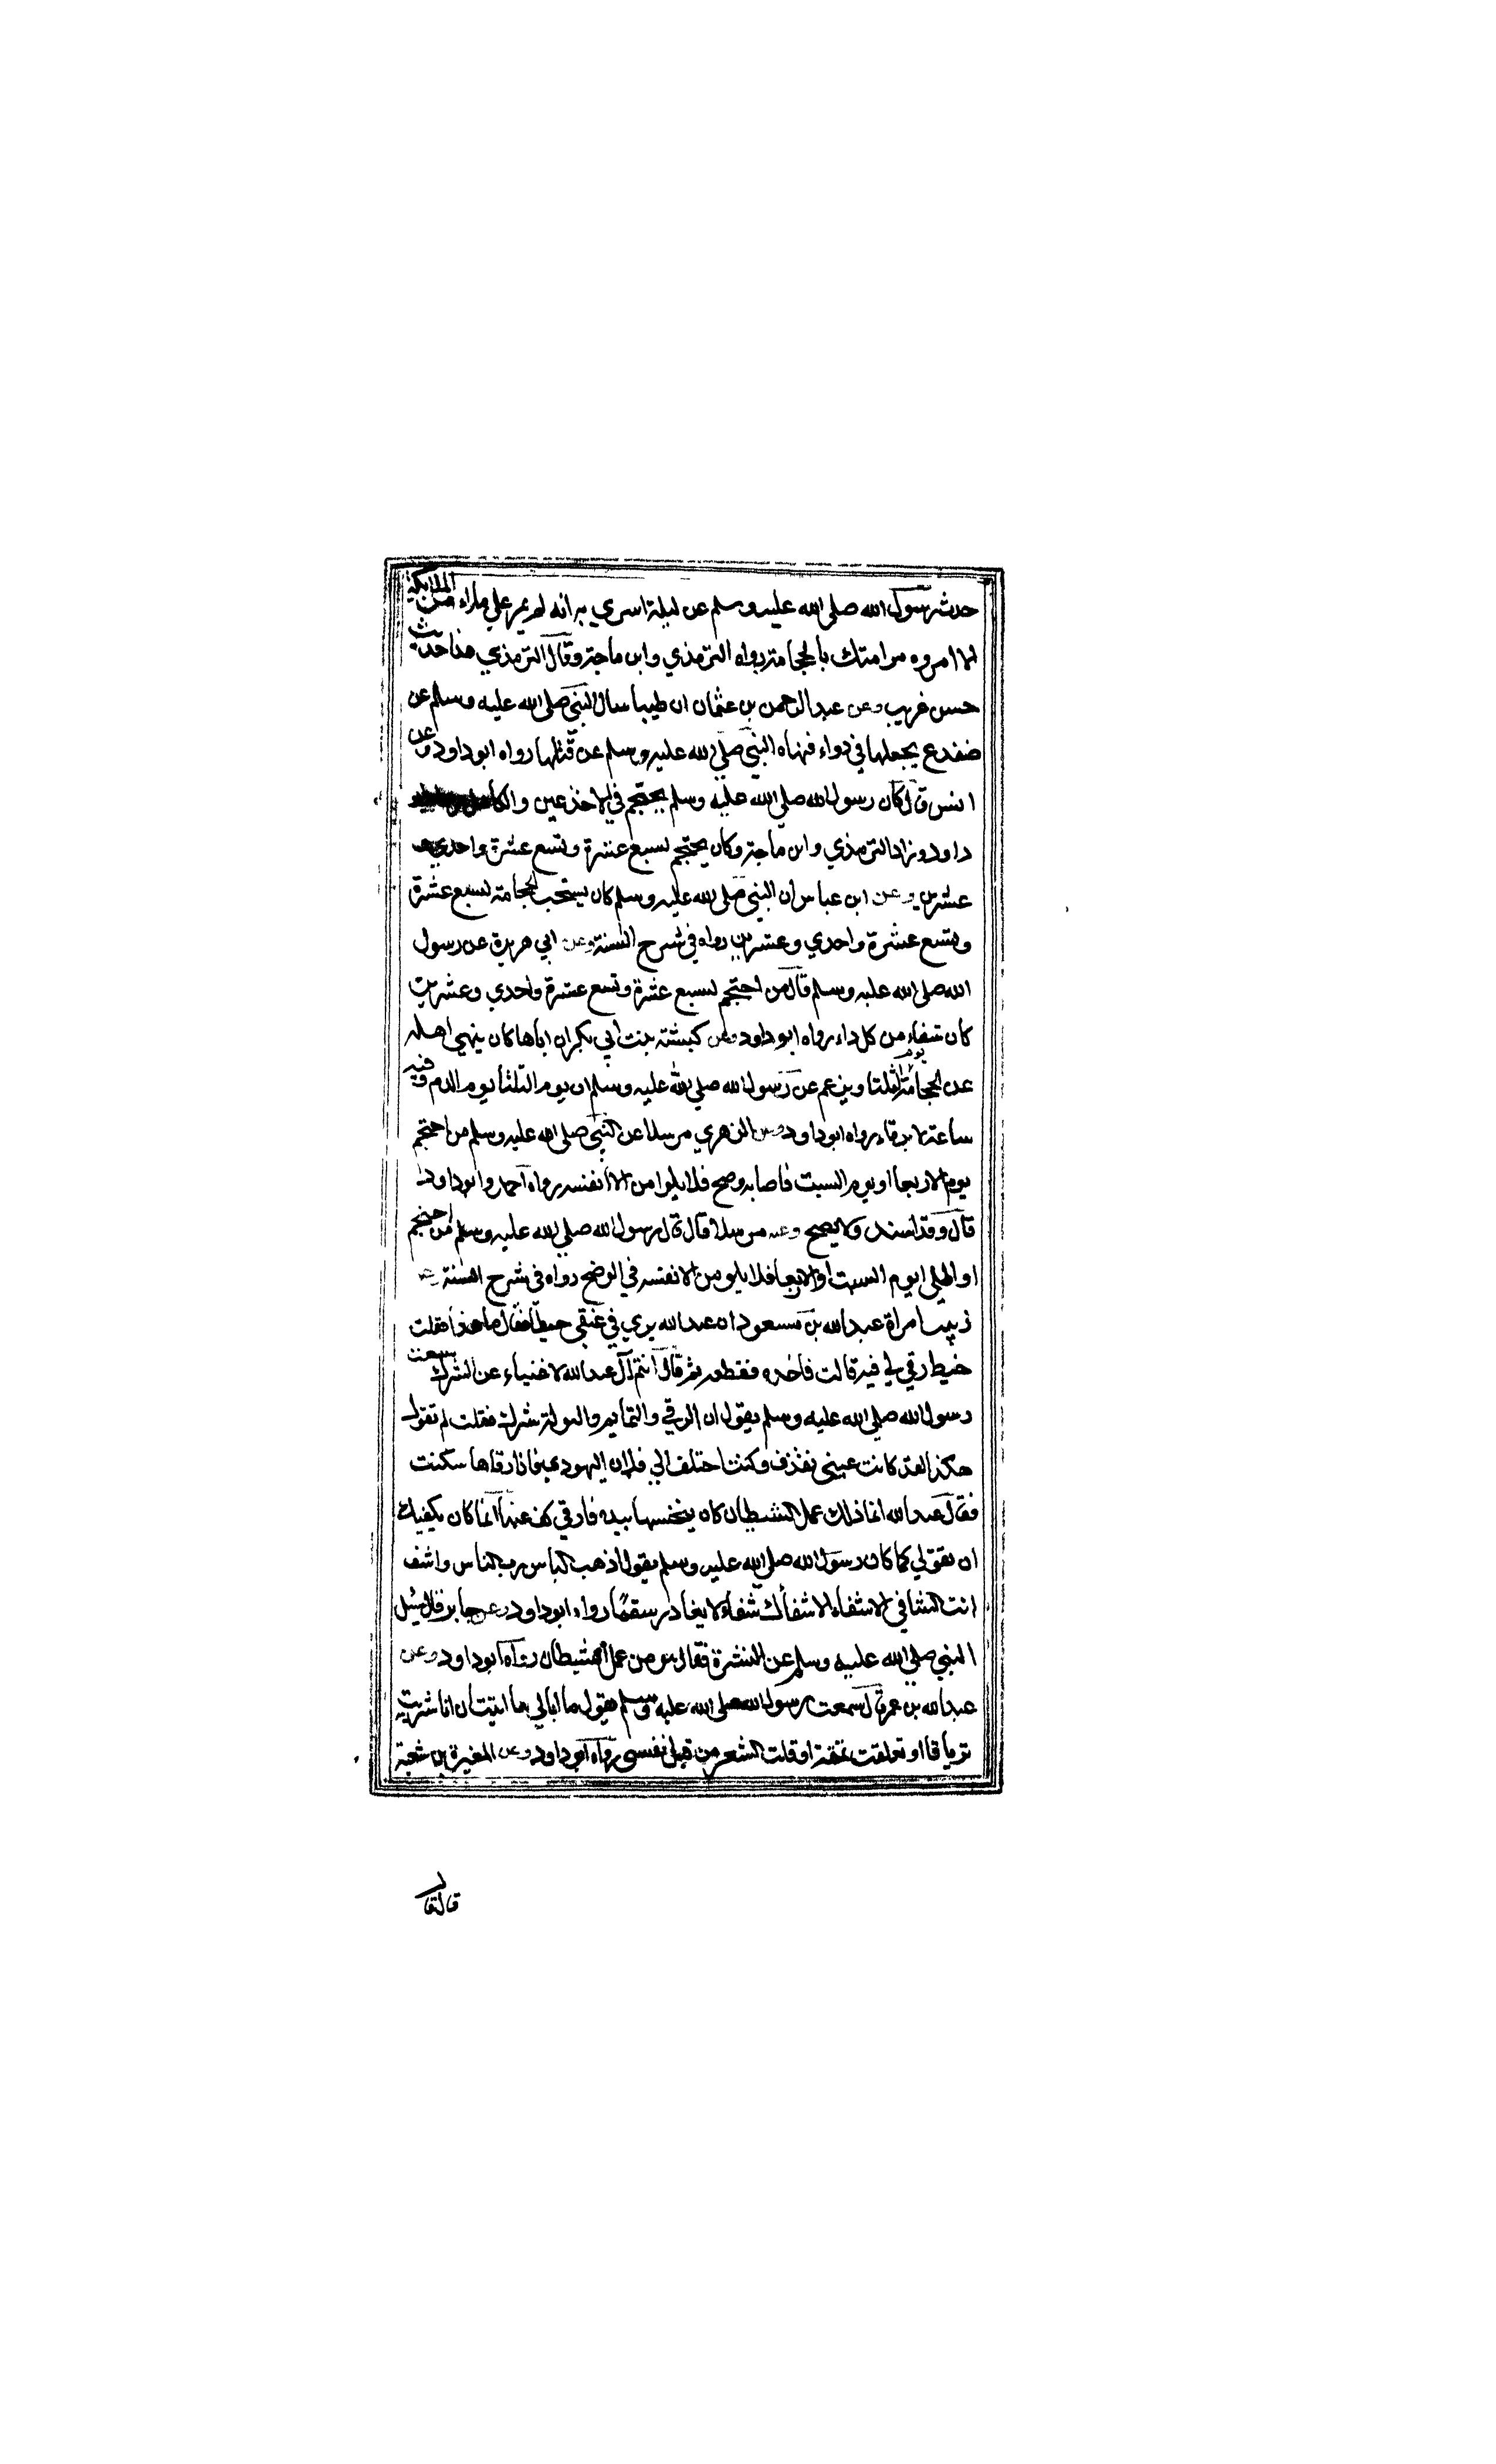 حدث رسول الله صلى الله عليه وسلم عن ليلة اسري به انه لم يمر علي ملاء من الملائكة
الا امروه مرامتك بالحجامة رواه الترمذي وابن ماجة وقال الترمذي هذا حديث
حسن غريب وعن عبد الرحمن بن عثمان ان طبيبا سال النبي صلى الله عليه وسلم عن
ضفدع يجعلها في دواء فنهاه النبي صلى الله عليه وسلم عن قتلها رواه ابو داود وعن
انس قال كان رسول الله صلى الله عليه وسلم يحتجم في الاخذعين والكاهل
داود وزاد الترمذي وابن ماجة وكان يحتجم لسبع عشرة وتسع عشرة واحدي و
عشرين وعن ابن عباس ان النبي صلى الله عليه وسلم كان يستحب الحجامة لسبع عشرة
وتسع عشرة واحدي وعشرين رواه في شرح السنة وعن ابي هريرة عن رسول
الله صلى الله عليه وسلم قال من احتجم لسبع عشرة وتسع عشرة واحدي وعشرين
كان شفاء من كل داء رواه ابو داود وعن كبشة بنت ابي بكر ان اباها كان ينهي اهله
عن الحجامة يوم الثلثا ويزعم عن رسول الله صلى الله عليه وسلم ان يوم الثلثا يوم الدم وفيه
ساعة لا يرقاء رواه ابو داود وعن الزهري مرسلا عن النبي صلى الله عليه وسلم من احتجم
يوم الاربعا او يوم السبت فاصابه وضح فلا يلوا من الا نفسه رواه احمد وابو داود
قال وقد اسند ولا يصح وعنه مرسلا قال قال رسول الله صلى الله عليه وسلم من احتجم
او اطلي يوم السبت او الاربعا فلا يلومن الا نفسه في الوضح رواه في شرح السنة وعن
زينب امراة عبد الله بن مسعود ان عبد الله يري في عنقي خيطا فقال ما هذا فقلت
خيط رقي لي فيه قالت فاخذه فقطعه ثم قال انتم آل عبد الله لا غنياء عن الشرك سمعت
رسول الله صلى الله عليه وسلم يقول ان الرقي والتمايم والتولة شرك فقلت لم تقول
هكذا لقد كانت عيني تقذف وكنت اختلف الي فلان اليهودي فاذا رقاها سكنت
فقال عبد الله انما ذلك عمل الشيطان كان ينخسها بيده فاذ رقي كف عنها انما كان يكفيك
ان تقولي كما كان رسول الله صلى الله عليه وسلم يقول اذهب الباس رب الناس واشف
انت الشافي لا شفاء الا شفاك شفاء لا يغادر سقما رواه ابو داود وعن جابر قال سئل
النبي صلى الله عليه وسلم عن النشرة فقال هو من عمل الشيطان رواه ابو داود وعن
عبد الله بن عمر قال سمعت رسول الله صلى الله عليه وسلم يقول ما ابالي ما اتيت ان انا شربت
ترياقا او تعلقت تميمة او قلت الشعر من قبل نفسي رواه ابو داود وعن المغيرة بن شعبة
قال قال